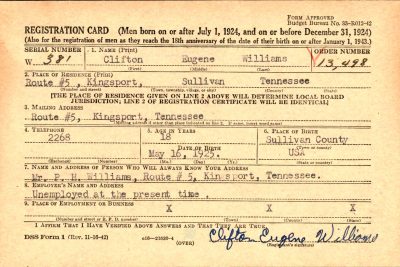 Form Approved
Budget Bureau No. 33-R012-42
REGISTRATION CARD (Men born on or after July 1, 1924, and on or before December 31, 1924)
(Also for the registration of men as they reach the 18th anniversary of the date of their birth on or after January 1, 1943.)
SERIAL NUMBER 1. NAME (Print) ORDER NUMBER
W 381 Clifton Eugene Williams 13,498
(First) (Middle) (Last)
2. PLACE OF RESIDENCE (Print)
Route #5, Kingsport, Sullivan Tennessee
(Number and street) (Town, township, village, or city) (County) (State)
[THE PLACE OF RESIDENCE GIVEN ON LINE 2 ABOVE WILL DETERMINE LOCAL BOARD
JURISDICTION; LINE 2 OF REGISTRATION CERTIFICATE WILL BE IDENTICAL]
3. MAILING ADDRESS
Route #5, Kingsport, Tennessee
4. TELEPHONE 5. AGE IN YEARS 6. PLACE OF BIRTH
2268 18 Sullivan County
DATE OF BIRTH
May 16, 1925. USA
7. NAME AND ADDRESS OF PERSON WHO WILL ALWAYS KNOW YOUR ADDRESS
Mr. P. H. Williams, Route # 5, Kingsport, Tennessee.
8. EMPLOYER'S NAME AND ADDRESS
Unemployed at the present time.
9. PLACE OF EMPLOYMENT OR BUSINESS
X X X
(Number and street or R. F. D. number) (Town) (County) (State)
I AFFIRM THAT I HAVE VERIFIED ABOVE ANSWERS AND THAT THEY ARE TRUE.
DSS Form 1 (Rev. 11-16-42) (OVER) Clifton Eugene Williams
(Registrant's signature)